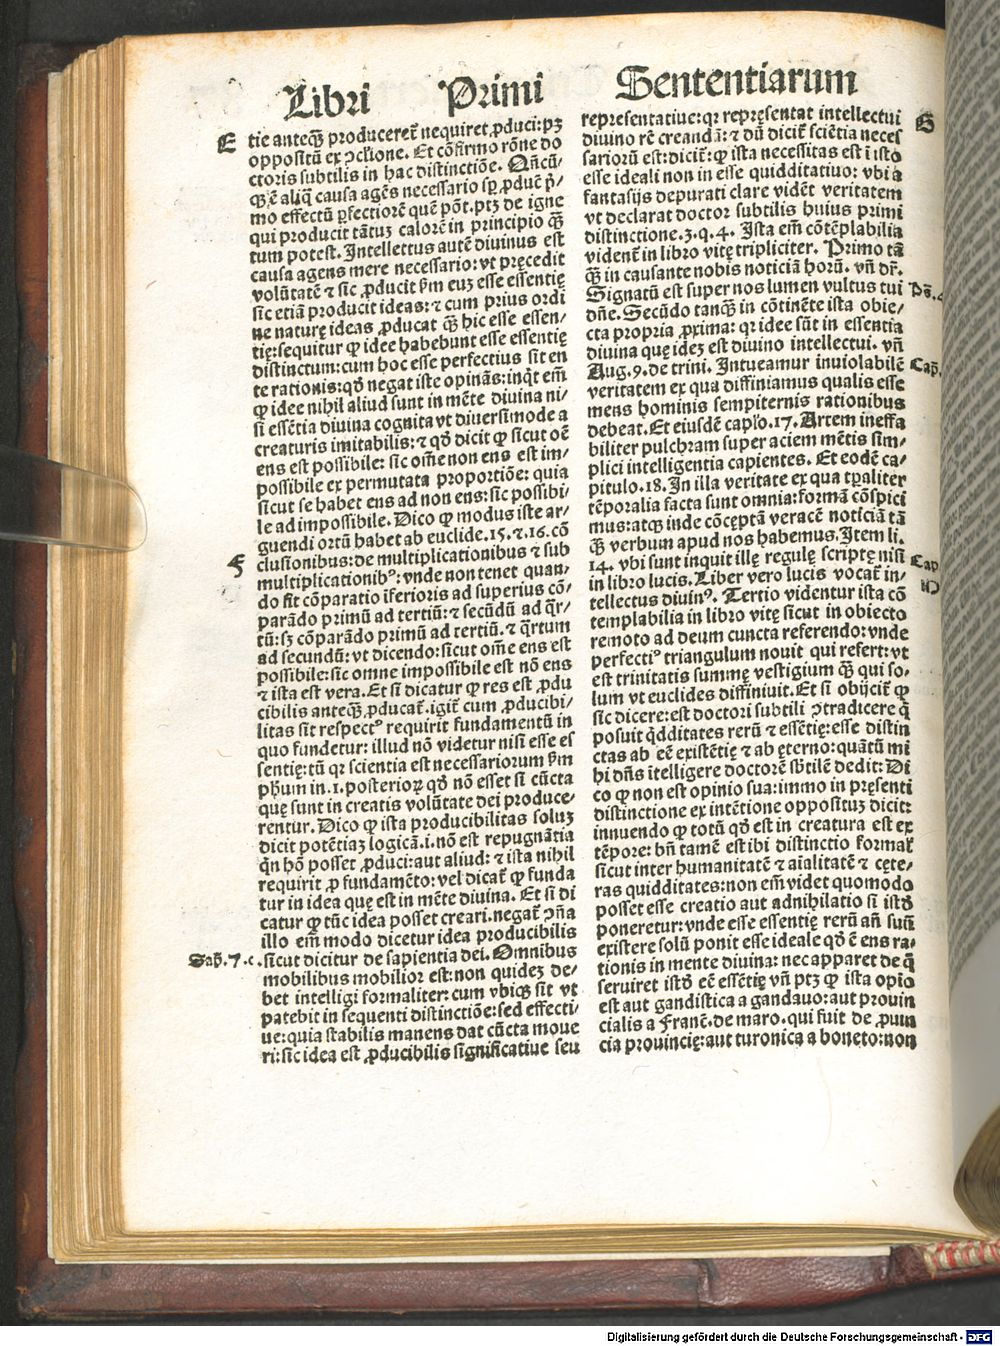 Libri Primi Sententiarum
E
tie anteq̃ produceret̃ nequiret ꝓduci: pꝫ
oppositũ ex ↄcl'ione. Et cõfirmo rõne do
ctoris subtilis in hac distinctiõe. Qñcũ/
q̃ ẽ aliq̃ causa agẽs necessario sꝑ ꝓduc̃ p̃/
mo effectũ ꝑfectiorẽ quẽ põt. ptꝫ de igne
qui producit tãtuꝫ calorẽ in principio q̃
tum potest. Intellectus autẽ diuinus est
causa agens mere necessario: vt pręcedit
volũtatẽ ⁊ sic ꝓducit p̃m euꝫ esse essentię
sic etiã producit ideas: ⁊ cum prius ordi
ne naturę ideas ꝓducat q̃ hic esse essen/
tię: sequitur ꝙ idee habebunt esse essentię
distinctum: cum hoc esse perfectius sit en
te rationis: qđ negat iste opinãs: inq̃t em̃
ꝙ idee nihil aliud sunt in mẽte diuina ni/
si essẽtia diuina cognita vt diuersimode a
creaturis imitabilis: ⁊ qđ dicit ꝙ sicut oẽ
ens est possibile: sic om̃e non ens est im/
possibile ex permutata proportiõe: quia
sicut se habet ens ad non ens: sic possibi/
le ad impossibile. Dico ꝙ modus iste ar/
guendi ortũ habet ab euclide .15. ⁊ .16. cõ
F
clusionibus: de multiplicationibus ⁊ sub
multiplicationibꝰ: vnde non tenet quan/
do fit cõparatio ĩferioris ad superius cõ/
parãdo primũ ad tertiũ: ⁊ secũdũ ad q̃r/
tũ: sꝫ cõparãdo primũ ad tertiũ. ⁊ q̃rtum
ad secundũ: vt dicendo: sicut om̃e ens est
possibile: sic omne impossibile est nõ ens
⁊ ista est vera. Et si dicatur ꝙ res est ꝓdu
cibilis anteq̃ ꝓducat̃. igit̃ cum ꝓducibi/
litas sit respectꝰ requirit fundamentũ in
quo fundetur: illud nõ videtur nisi esse es
sentię: tũ qꝛ scientia est necessariorum p̃m
ph̃um in .1. posterioꝝ qđ nõ esset si cũcta
quę sunt in creatis volũtate dei produce/
rentur. Dico ꝙ ista producibilitas soluꝫ
dicit potẽtiaꝫ logicã .i. nõ est repugnãtia
q̃n hõn posset ꝓduci: aut aliud: ⁊ ista nihil
requirit ꝓ fundamẽto: vel dicat̃ ꝙ funda
tur in idea que est in mẽte diuina. Et si di
catur ꝙ tũc idea posset creari. negat̃ ↄñã
illo em̃ modo dicetur idea producibilis
Sap̃. 7. c.
sicut dicitur de sapientia dei. Omnibus
mobilibus mobilior est: non quideꝫ de/
bet intelligi formaliter: cum vbiq̃ sit vt
patebit in sequenti distinctiõe: sed effecti/
ue: quia stabilis manens dat cũcta moue
ri: sic idea est ꝓducibilis significatiue seu
G
representatiue: qꝛ repręsentat intellectui
diuino rẽ creandã: ⁊ dũ dicit̃ sciẽtia neces
sariorũ est: dicit̃: ꝙ ista necessitas est ĩ isto
esse ideali non in esse quidditatiuo: vbi a
fantasijs depurati clare vidẽt veritatem
vt declarat doctor subtilis huius primi
distinctione .3. q. 4. Ista em̃ cõtẽplabilia
vident̃ in libro vitę tripliciter. Primo tã
q̃ in causante nobis noticiã horũ. vñ dr̃.
Signatũ est super nos lumen vultus tui
Ps̃. 4
dñe. Secũdo tanq̃ in cõtinẽte ista obie/
cta propria ꝓxima: qꝛ idee sũt in essentia
diuina quę ideꝫ est diuino intellectui. vñ
Aug. 9. de trini. Intueamur inuiolabilẽ
Cap̃.
veritatem ex qua diffiniamus qualis esse
mens hominis sempiternis rationibus
debeat. Et eiusdẽ cap̃lo .17. Artem ineffa
biliter pulchram super aciem mẽtis sim/
plici intelligentia capientes. Et eodẽ ca/
pitulo .18. In illa veritate ex qua tꝑaliter
tẽporalia facta sunt omnia: formã cõspici
mus: atq̃ inde cõcẹptã veracẽ noticiã tã
q̃ verbum apud nos habemus. Item li.
14. vbi sunt inquit illę regulę scriptę nisi
Cap
in libro lucis. Liber vero lucis vocat̃ in/
H
tellectus diuinꝰ. Tertio videntur ista cõ
templabilia in libro vitę sicut in obiecto
remoto ad deum cuncta referendo: vnde
perfectiꝰ triangulum nouit qui refert: vt
est trinitatis summę vestigium q̃ qui so/
lum vt euclides diffiniuit. Et si obijcit̃ ꝙ
sic dicere: est doctori subtili ↄtradicere q̃
posuit q̃dditates rerũ ⁊ essẽtię: esse distin
ctas ab eẽ existẽtię ⁊ ab ęterno: quãtũ mi
hi dñs ĩtelligere doctorẽ sb̃tilẽ dedit: Di
co ꝙ non est opinio sua: immo in pręsenti
distinctione ex intẽtione oppositũ dicit:
innuendo ꝙ totũ qđ est in creatura est ex
tẽpore: bñ tamẽ est ibi distinctio formal̃
sicut inter humanitatẽ ⁊ aĩalitatẽ ⁊ cęte/
ras quidditates: non em̃ videt quomodo
posset esse creatio aut adnihilatio si istđ
poneretur: vnde esse essentię rerũ añ suũ
existere solũ ponit esse ideale qđ ẽ ens ra/
tionis in mente diuina: nec apparet de q̃
seruiret istđ eẽ essẽtię vñ ptꝫ ꝙ ista opio
est aut gandistica a gandauo: aut prouin
cialis a Franc̃. de maro. qui fuit de ꝓuin
cia prouincię: aut turonica a boneto: non
Digitalisierung gefördert durch die Deutsche Forschungsgemeinschaft - DFG